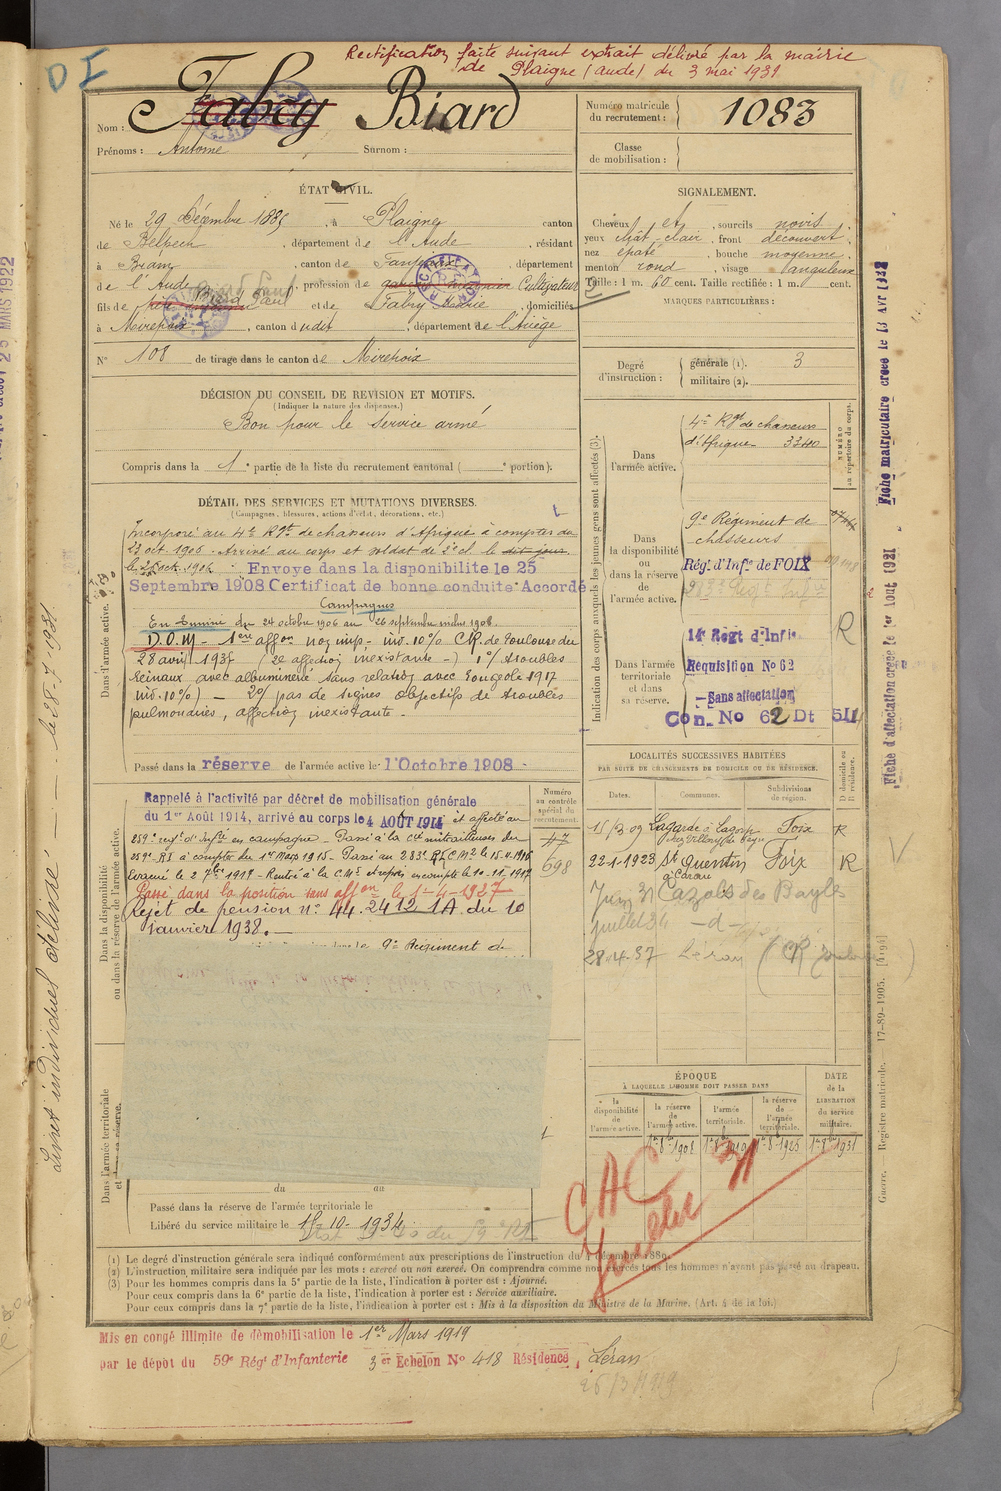 Rectification faite suivant extrait délivré par la mairie
de Plaigne (Aude) du 3 mai 1931
DI
Nom : Fabry Biard
Prénoms : Antoine Surnom :
Numéro matricule du recrutement : 1083
Classe de mobilisation :
ÉTAT CIVIL.
Né le 29 Décembre 1885, à Plaigne canton
de Belpech, département de l'Aude, résidant
à , canton de , département
de l'Aude, profession de Cultivateur
fils de Biard Paul et de Fabry Marie, domiciliés
à Mirepoix, canton dudit, département de l'Ariège
RECTIFICATION
N° 108 de tirage dans le canton de Mirepoix
SIGNALEMENT.
Cheveux et, sourcils noirs.
yeux chât clair, front découvert.
nez épaté, bouche moyenne.
menton rond, visage anguleux
Taille : 1 m. 60 cent. Taille rectifiée : 1 m. cent.
MARQUES PARTICULIÈRES :
Degré d'instruction : générale (1). 3
militaire (2).
DÉCISION DU CONSEIL DE REVISION ET MOTIFS.
(Indiquer la nature des dispenses.)
Bon pour le service armé
Compris dans la 1e partie de la liste du recrutement cantonal ( e portion).
DÉTAIL DES SERVICES ET MUTATIONS DIVERSES.
(Campagnes, blessures, actions d'éclat, décorations, etc.)
Dans l'armée active.
Incorporé au 4e Rgt de chasseurs d'Afrique à compter du
23 oct. 1906. Arrivé au corps et soldat de 2e cl. le dit jour.
le 25 oct. 1906. Envoye dans la disponibilite le 25
Septembre 1908 Certificat de bonne conduite Accordé
Campagnes
En Tunisie du 24 octobre 1906 au 26 septembre inclus 1908.
D.O.M - 1ere affon non imp. inv. 10% CR. de Toulouse du
28 avril 1937 (2e affection inexistante -) 1°/ troubles
avec albuminerie sans relation avec rougeole 1917
inv. 10%) - 2°/ pas de signes objectifs de troubles
pulmonaires, affection inexistante -
Passé dans la réserve de l'armée active le 1 Octobre 1908 -
Indication des corps auxquels les jeunes gens sont affectés (3).
NUMÉRO au répertoire du corps.
Dans l'armée active.
4e Rgt de chasseurs
d'Afrique 3340
Dans la disponibilité ou dans la réserve de l'armée active.
9e Régiment de
chasseurs
Régt d'Infie de FOIX
Dans l'armée territoriale et dans sa réserve.
14e Regt d'Infie
R
Requisition No 62
- Sans affectation
Con. No 62 Dt 511
Dans la disponibilité ou dans la réserve de l'armée active.
Numéro au contrôle spécial du recrutement.
47
698
Rappelé à l'activité par décret de mobilisation générale
du 1er Août 1914, arrivé au corps le 4 AOÛT 1914 et affecté au
259e regt d'Infie en campagne - Passé à la Cie mitrailleuses du
259e RI à compter du 1er Mars 1915 - Passé au 283e RI C M2 le 15-4-1916
Evacué le 2 7bre 1917 - Rentré à la C M5 et après en compte le 10-11-1917
Passé dans la position sans affon le 1-4-1927
Rejet de pension n° 44.2412 1A du 10
janvier 1938. -
9e Régiment de
LOCALITÉS SUCCESSIVES HABITÉES
PAR SUITE DE CHANGEMENTS DE DOMICILE OU DE RÉSIDENCE.
Dates. Communes. Subdivisions de région. D domicile ou R résidence.
15/3 09 Lagarde Foix R
22-1-1923 St Quentin Foix R
Juin 31 Cazals des Bayles
juillet 34 - d -
28-4-37 Léran
ÉPOQUE
À LAQUELLE L'HOMME DOIT PASSER DANS
la disponibilité de l'armée active.
la réserve de l'armée active.
l'armée territoriale.
la réserve de l'armée territoriale.
DATE de la LIBÉRATION du service militaire.
1er 8bre 1908 1er 8bre 1919 1er 8bre 1925 1er 8bre 1931
CAC 31
Juillet
Dans l'armée territoriale et dans sa réserve.
du au
Passé dans la réserve de l'armée territoriale le
Libéré du service militaire le 15-10-1934
(1) Le degré d'instruction générale sera indiqué conformément aux prescriptions de l'instruction du 4 décembre 1889.
(2) L'instruction militaire sera indiquée par les mots : exercé ou non exercé. On comprendra comme non exercés tous les hommes n'ayant pas passé au drapeau.
(3) Pour les hommes compris dans la 5e partie de la liste, l'indication à porter est : Ajourné.
Pour ceux compris dans la 6e partie de la liste, l'indication à porter est : Service auxiliaire.
Pour ceux compris dans la 7e partie de la liste, l'indication à porter est : Mis à la disposition du Ministre de la Marine. (Art. 4 de la loi.)
Mis en congé illimite de démobilisation le 1er Mars 1919
par le dépôt du 59e Régt d'Infanterie 3er Echelon No 418 Résidence, Léran
26/3/1919
Livret individuel délivré - le 28-7-1931
25 MARS 1922
Fiche matriculaire creee le 13 Avr 1938
Fiche d'affectation creee le 1er Aout 1921
Guerre. Registre matricule. — 17-89-1905. [4194]